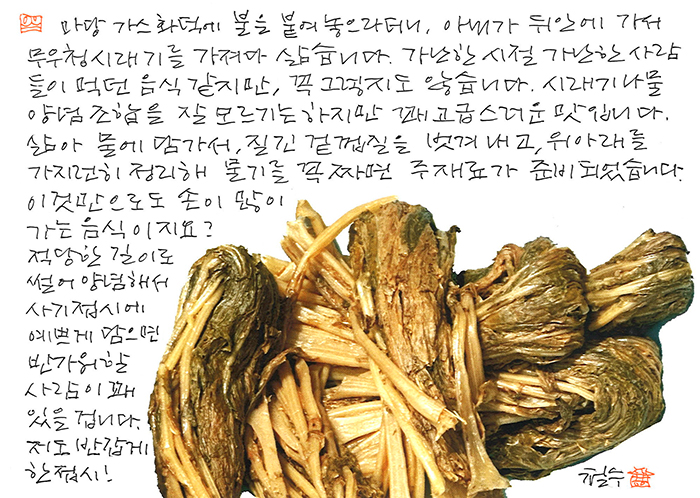 마당 가스화덕에 불을 붙여놓으라더니, 아내가 뒤안에 가서
무우청시래기를 가져다 삶습니다. 가난한 시절 가난한 사람
들이 먹던 음식 같지만, 꼭 그렇지도 않습니다. 시래기나물
양념 조합을 잘 모르기는 하지만 꽤 고급스러운 맛입니다.
삶아 물에 담가서, 질긴 겉껍질을 벗겨 내고, 위아래를
가지런히 정리해 물기를 꼭 짜면 주재료가 준비되었습니다.
이것만으로도 손이 많이
가는 음식이지요?
적당한 길이로
썰어 양념해서
사기접시에
예쁘게 담으면
반가워할
사람이 꽤
있을 겁니다.
저도 반갑게
한접시!
철수